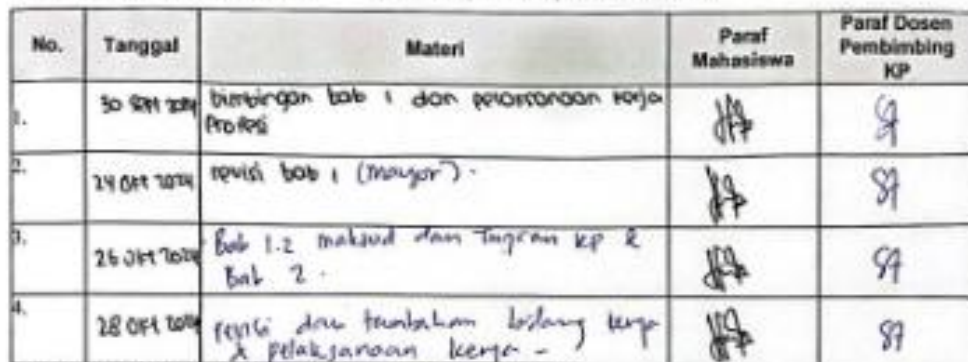 No. Tanggal Materi Paraf Mahasiswa Paraf Dosen Pembimbing KP
1. 30 Sept 2024 bimbingan bab 1 dan pelaksanaan kerja
Profesi
2. 24 Okt 2024 revisi bab 1 (mayor).
3. 26 Okt 2024 Bab 1.2 maksud dan Tujuan KP &
Bab 2.
4. 28 Okt 2024 revisi dan tambahan bidang kerja
& pelaksanaan kerja -